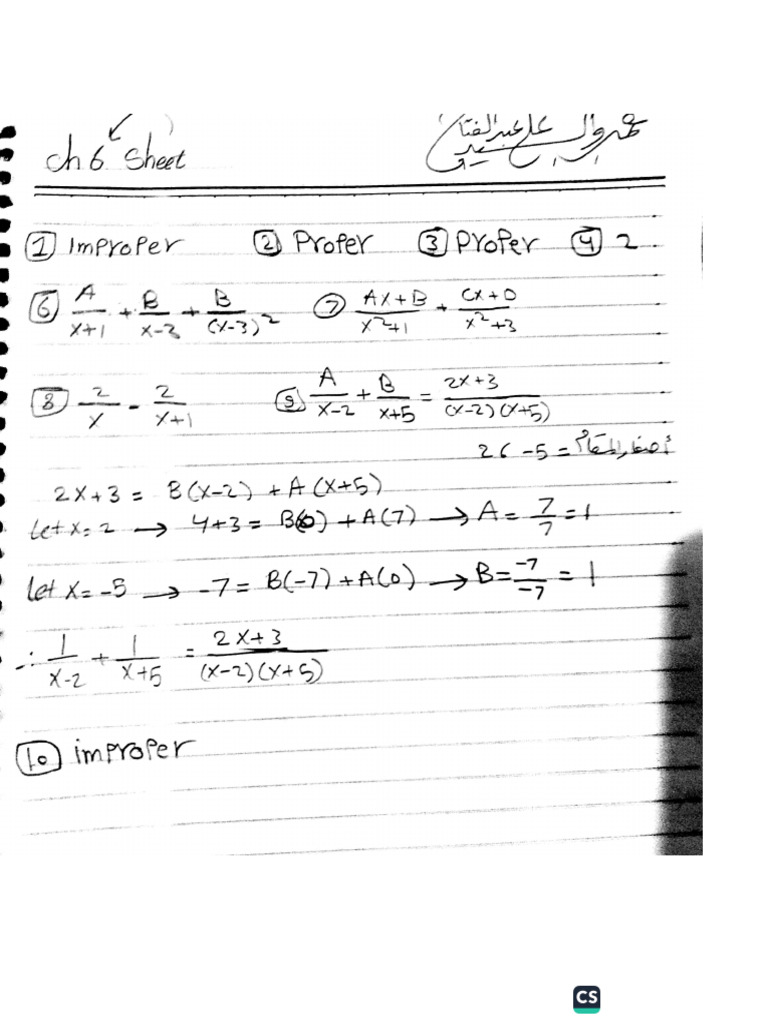 ch 6 Sheet
① Improper ② Proper ③ Proper ④ 2
⑥ A/(x+1) + B/(x-3) + B/(x-3)² ⑦ (Ax+B)/(x²+1) + (Cx+D)/(x²+3)
⑧ 2/x - 2/(x+1) ⑨ A/(x-2) + B/(x+5) = (2x+3)/((x-2)(x+5))
أصفار المقام = 2، -5
2x+3 = B(x-2) + A(x+5)
Let x=2 → 4+3 = B(0) + A(7) → A = 7/7 = 1
let x=-5 → -7 = B(-7) + A(0) → B = -7/-7 = 1
∴ 1/(x-2) + 1/(x+5) = (2x+3)/((x-2)(x+5))
⑩ improper
CS